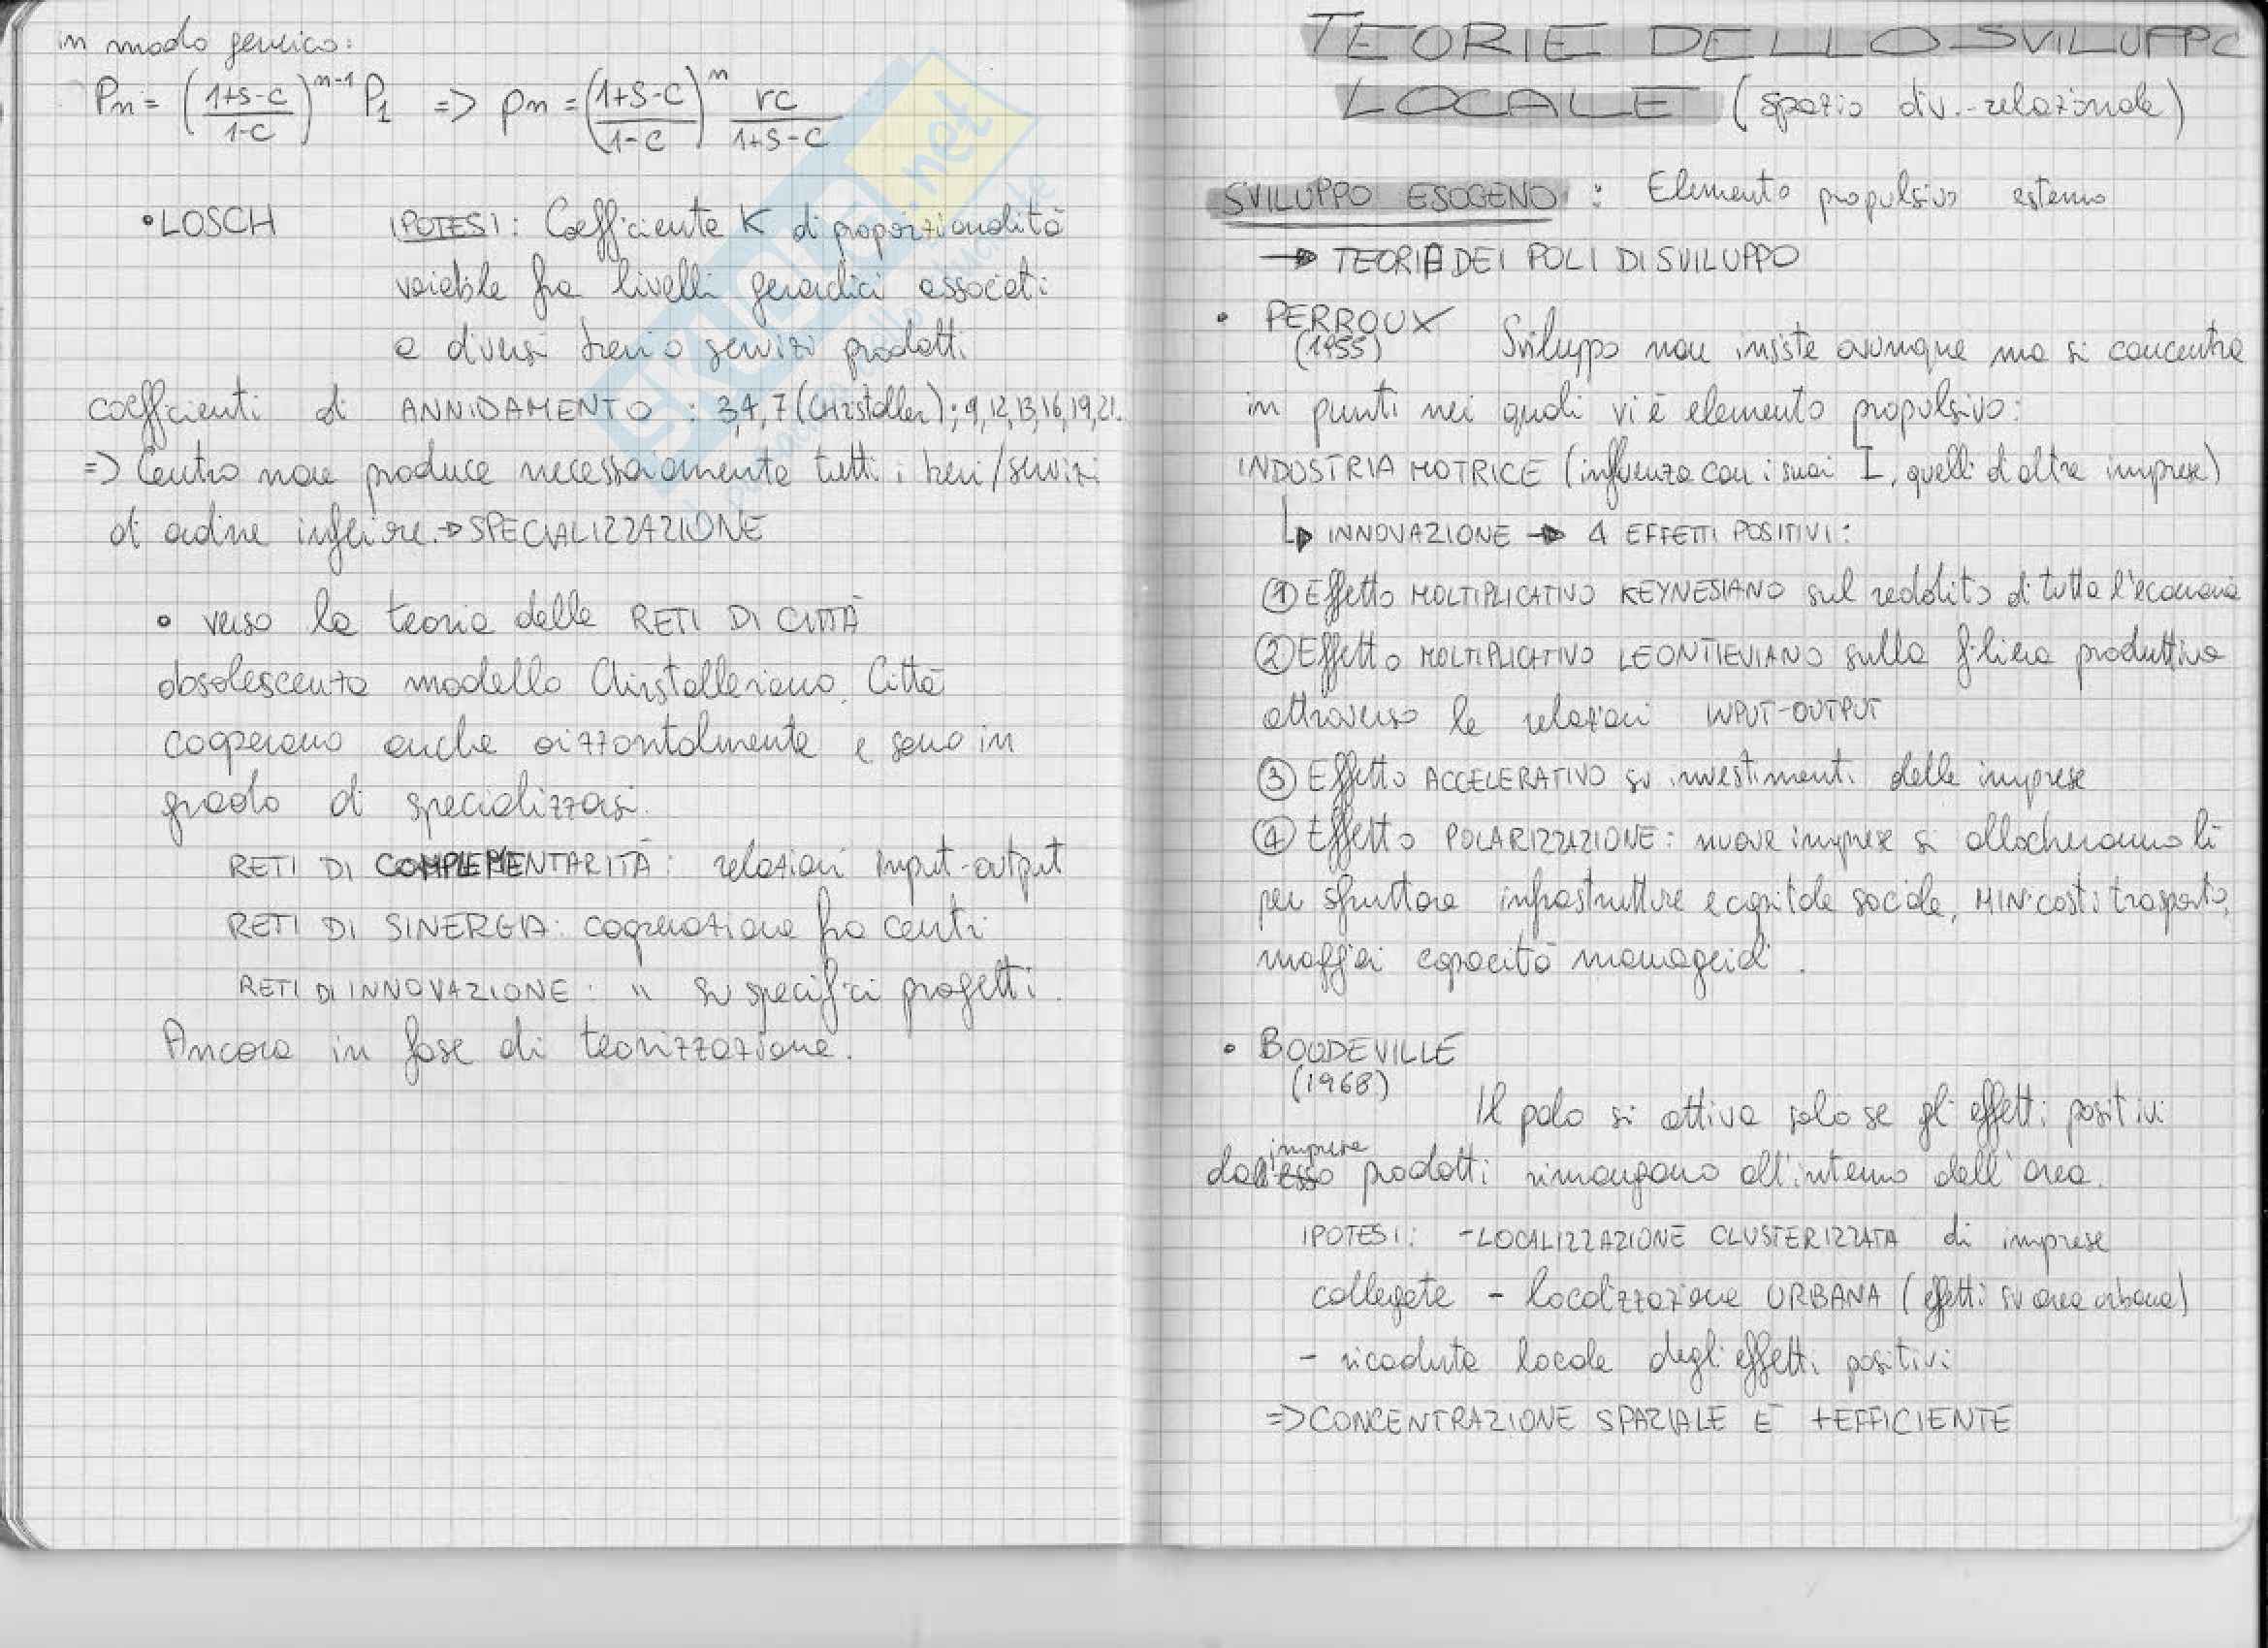 in modo generico:
Pn = ((1+S-C)/(1-C))^(n-1) P1 => pn = ((1+S-C)/(1-C))^n rc/(1+S-C)
• LOSCH IPOTESI: Coefficiente K di proporzionalità
variabile fra livelli gerarchici associati
a diversi beni o servizi prodotti
coefficienti di ANNIDAMENTO: 3,4,7 (Christaller); 9,12,13,16,19,21.
=> Centro non produce necessariamente tutti i beni/servizi
di ordine inferiore. → SPECIALIZZAZIONE
• verso la teoria delle RETI DI CITTÀ
obsolescenza modello Christalleriano. Città
cooperano anche orizzontalmente e sono in
grado di specializzarsi.
RETI DI COMPLEMENTARITÀ: relazioni input-output
RETI DI SINERGIA: cooperazione fra centri
RETI DI INNOVAZIONE: " su specifici progetti.
Ancora in fase di teorizzazione.
SKUOLA.net
TEORIE DELLO SVILUPPO
LOCALE (spazio div.-relazionale)
SVILUPPO ESOGENO: Elemento propulsivo esterno
→ TEORIA DEI POLI DI SVILUPPO
• PERROUX Sviluppo non insiste ovunque ma si concentra
(1955)
in punti nei quali vi è elemento propulsivo:
INDUSTRIA MOTRICE (influenza con i suoi I, quelli d'altre imprese)
↳ INNOVAZIONE → 4 EFFETTI POSITIVI:
① Effetto MOLTIPLICATIVO KEYNESIANO sul reddito di tutta l'economia
② Effetto MOLTIPLICATIVO LEONTIEVIANO sulla filiera produttiva
attraverso le relazioni INPUT-OUTPUT
③ Effetto ACCELERATIVO su investimenti delle imprese
④ Effetto POLARIZZAZIONE: nuove imprese si allocheranno lì
per sfruttare infrastrutture e capitale sociale, MIN costi trasporto,
maggiori capacità manageriali.
• BOUDEVILLE
(1968)
Il polo si attiva solo se gli effetti positivi
dall'impresa prodotti rimangono all'interno dell'area.
IPOTESI: - LOCALIZZAZIONE CLUSTERIZZATA di imprese
collegate - localizzazione URBANA (effetti su area urbana)
- ricadute locale degli effetti positivi
=> CONCENTRAZIONE SPAZIALE È + EFFICIENTE